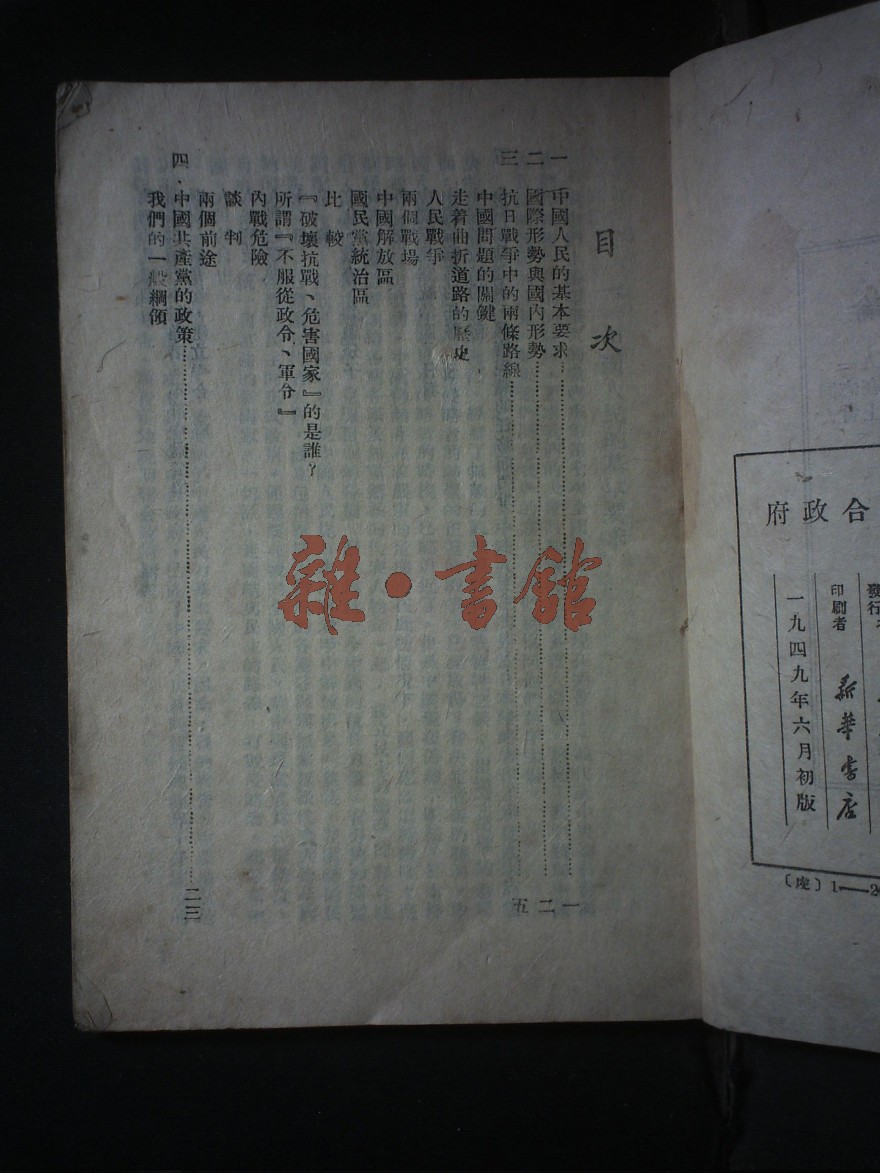 合政府
發行
印刷者 新華書店
一九四九年六月初版
〔虔〕1—2
目次
一 中國人民的基本要求……一
二 國際形勢與國內形勢……二
三 抗日戰爭中的兩條路線……五
中國問題的關鍵
走着曲折道路的歷史
人民戰爭
兩個戰場
中國解放區
國民黨統治區
比較
『破壞抗戰、危害國家』的是誰？
所謂『不服從政令、軍令』
內戰危險
談判
兩個前途
四、中國共產黨的政策……二三
我們的一般綱領
雜·書館